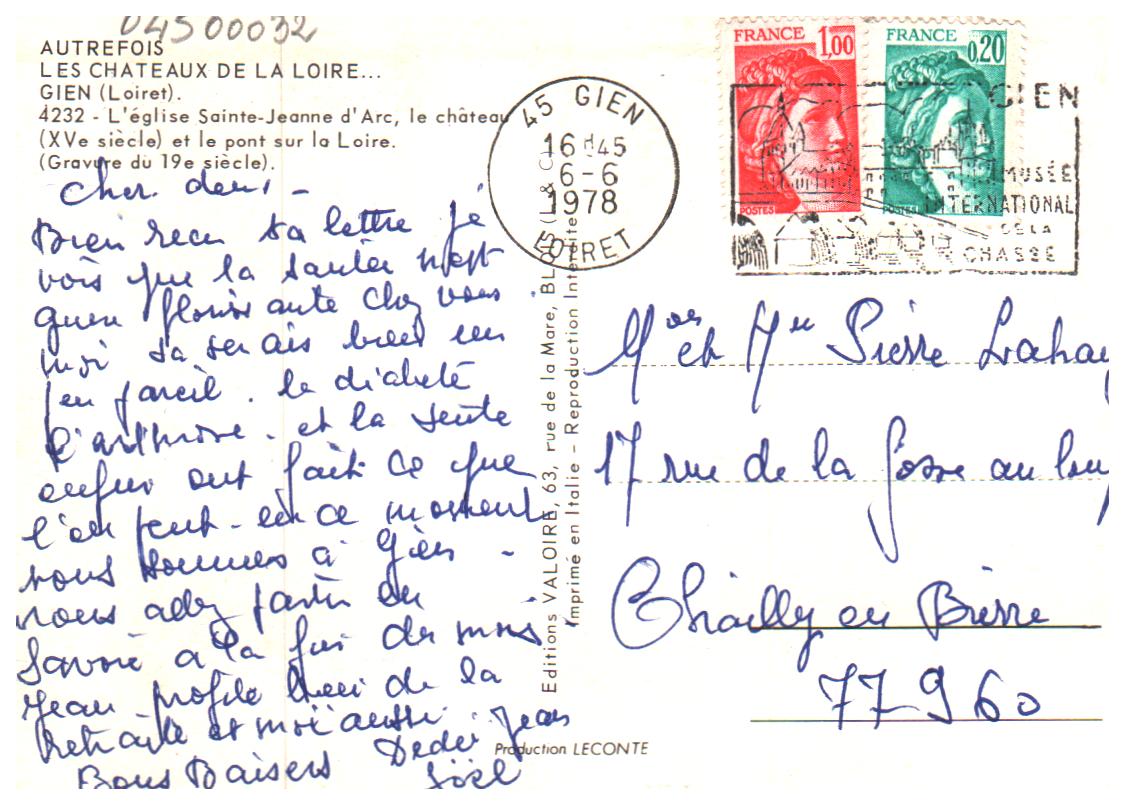 04500032
AUTREFOIS
LES CHATEAUX DE LA LOIRE...
GIEN (Loiret).
4232 - L'église Sainte-Jeanne d'Arc, le château
(XVe siècle) et le pont sur la Loire.
(Gravure du 19e siècle).
Cher deux -
Bien recu ta lettre je
vois que la santée n'est
quen florissante chez vous
moi sa serais bien un
peu pareil. le diabete
l'arthrose. et la
enfin ont fait ce que
l'on peut - en ce moment
nous sommes à Gien -
nous allez partir en
Savoie a la fin du mois
Jean profite bien de la
retraite et moi aussi
Bons Baisers Dédée Jean
Joël
Editions VALOIRE, 63, rue de la Mare, BLOIS (L & C)
Imprimé en Italie - Reproduction Interdite
Production LECONTE
45 GIEN
16 H45
6-6
1978
LOIRET
FRANCE 1,00
POSTES
FRANCE 0,20
POSTES
GIEN
MUSÉE
INTERNATIONAL
DE LA
CHASSE
et Pierre Lahay
17 rue de la fosse au lou
Chailly en Bierre
77960